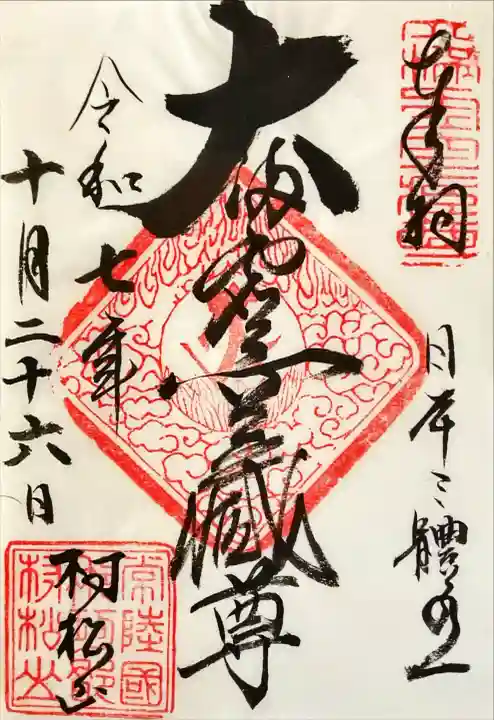 奉拝
日本三體之一
大満虚空蔵尊
令和七年
十月二十六日
村松山
常陸國
村松山